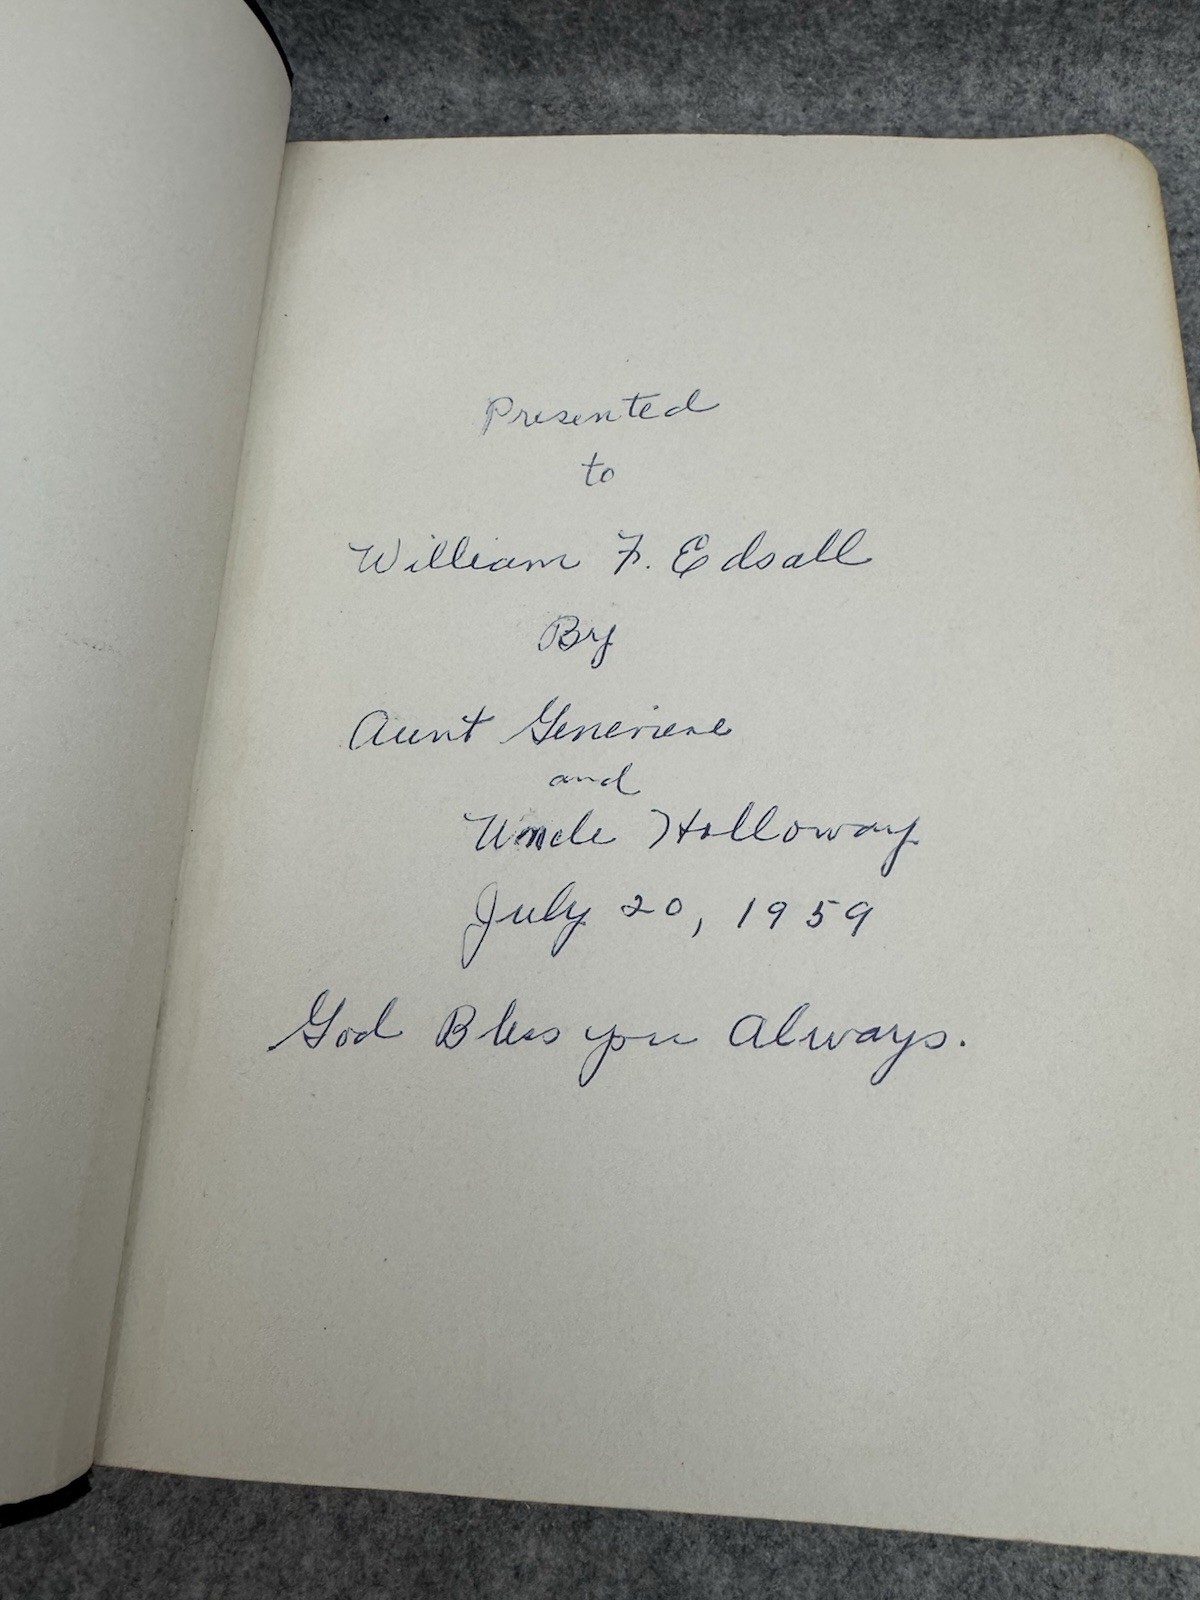 Presented
to
William F. Edsall
By
Aunt Genevieve
and
Uncle Holloway
July 20, 1959
God Bless you Always.